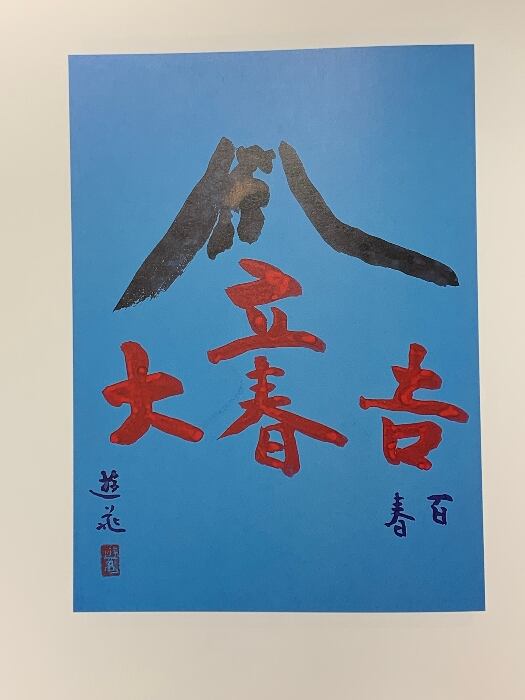 立春
大吉
百春
遊